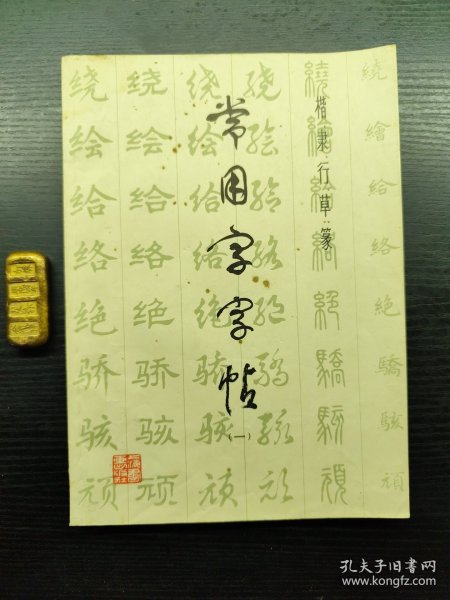 常用字字帖
(一)
楷隶行草篆
繞繪給絡絕驕駭頑
繞繪給絡絕驕駭頑
绕绘给络绝骄骇顽
绕绘给络绝骄骇顽
绕绘给络绝骄骇顽
绕绘给络绝骄骇顽
孔夫子旧书网
www.kongfz.com